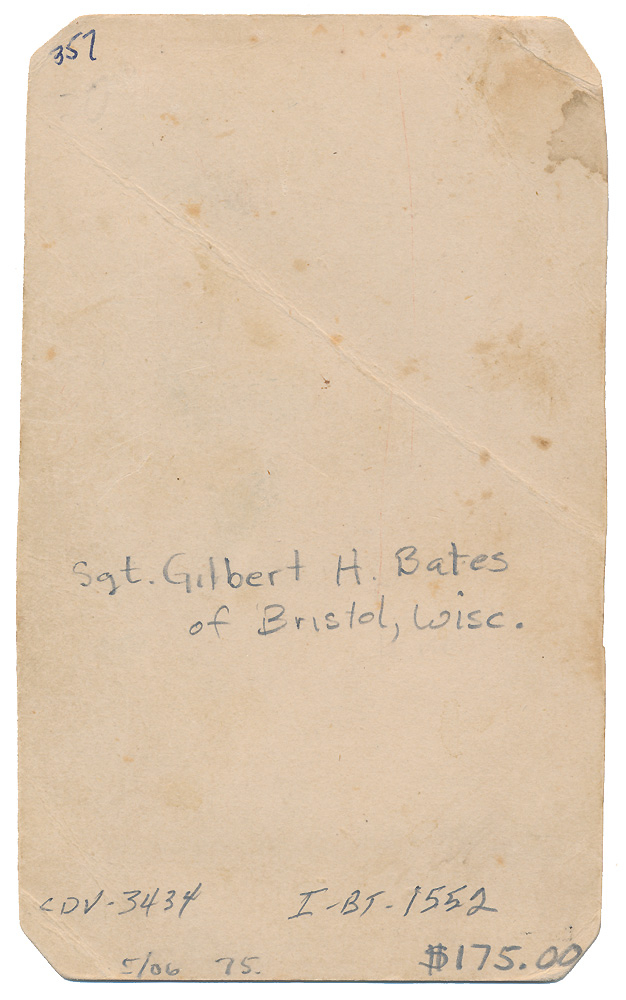 357
Sgt. Gilbert H. Bates
of Bristol, Wisc.
CDV-3434 I-BT-1552
5/06 75. $175.00